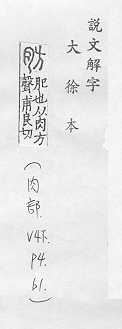 說文解字
大徐本
肪 肥也从肉方
聲甫良切
(肉部.V4下.P4.b1.)